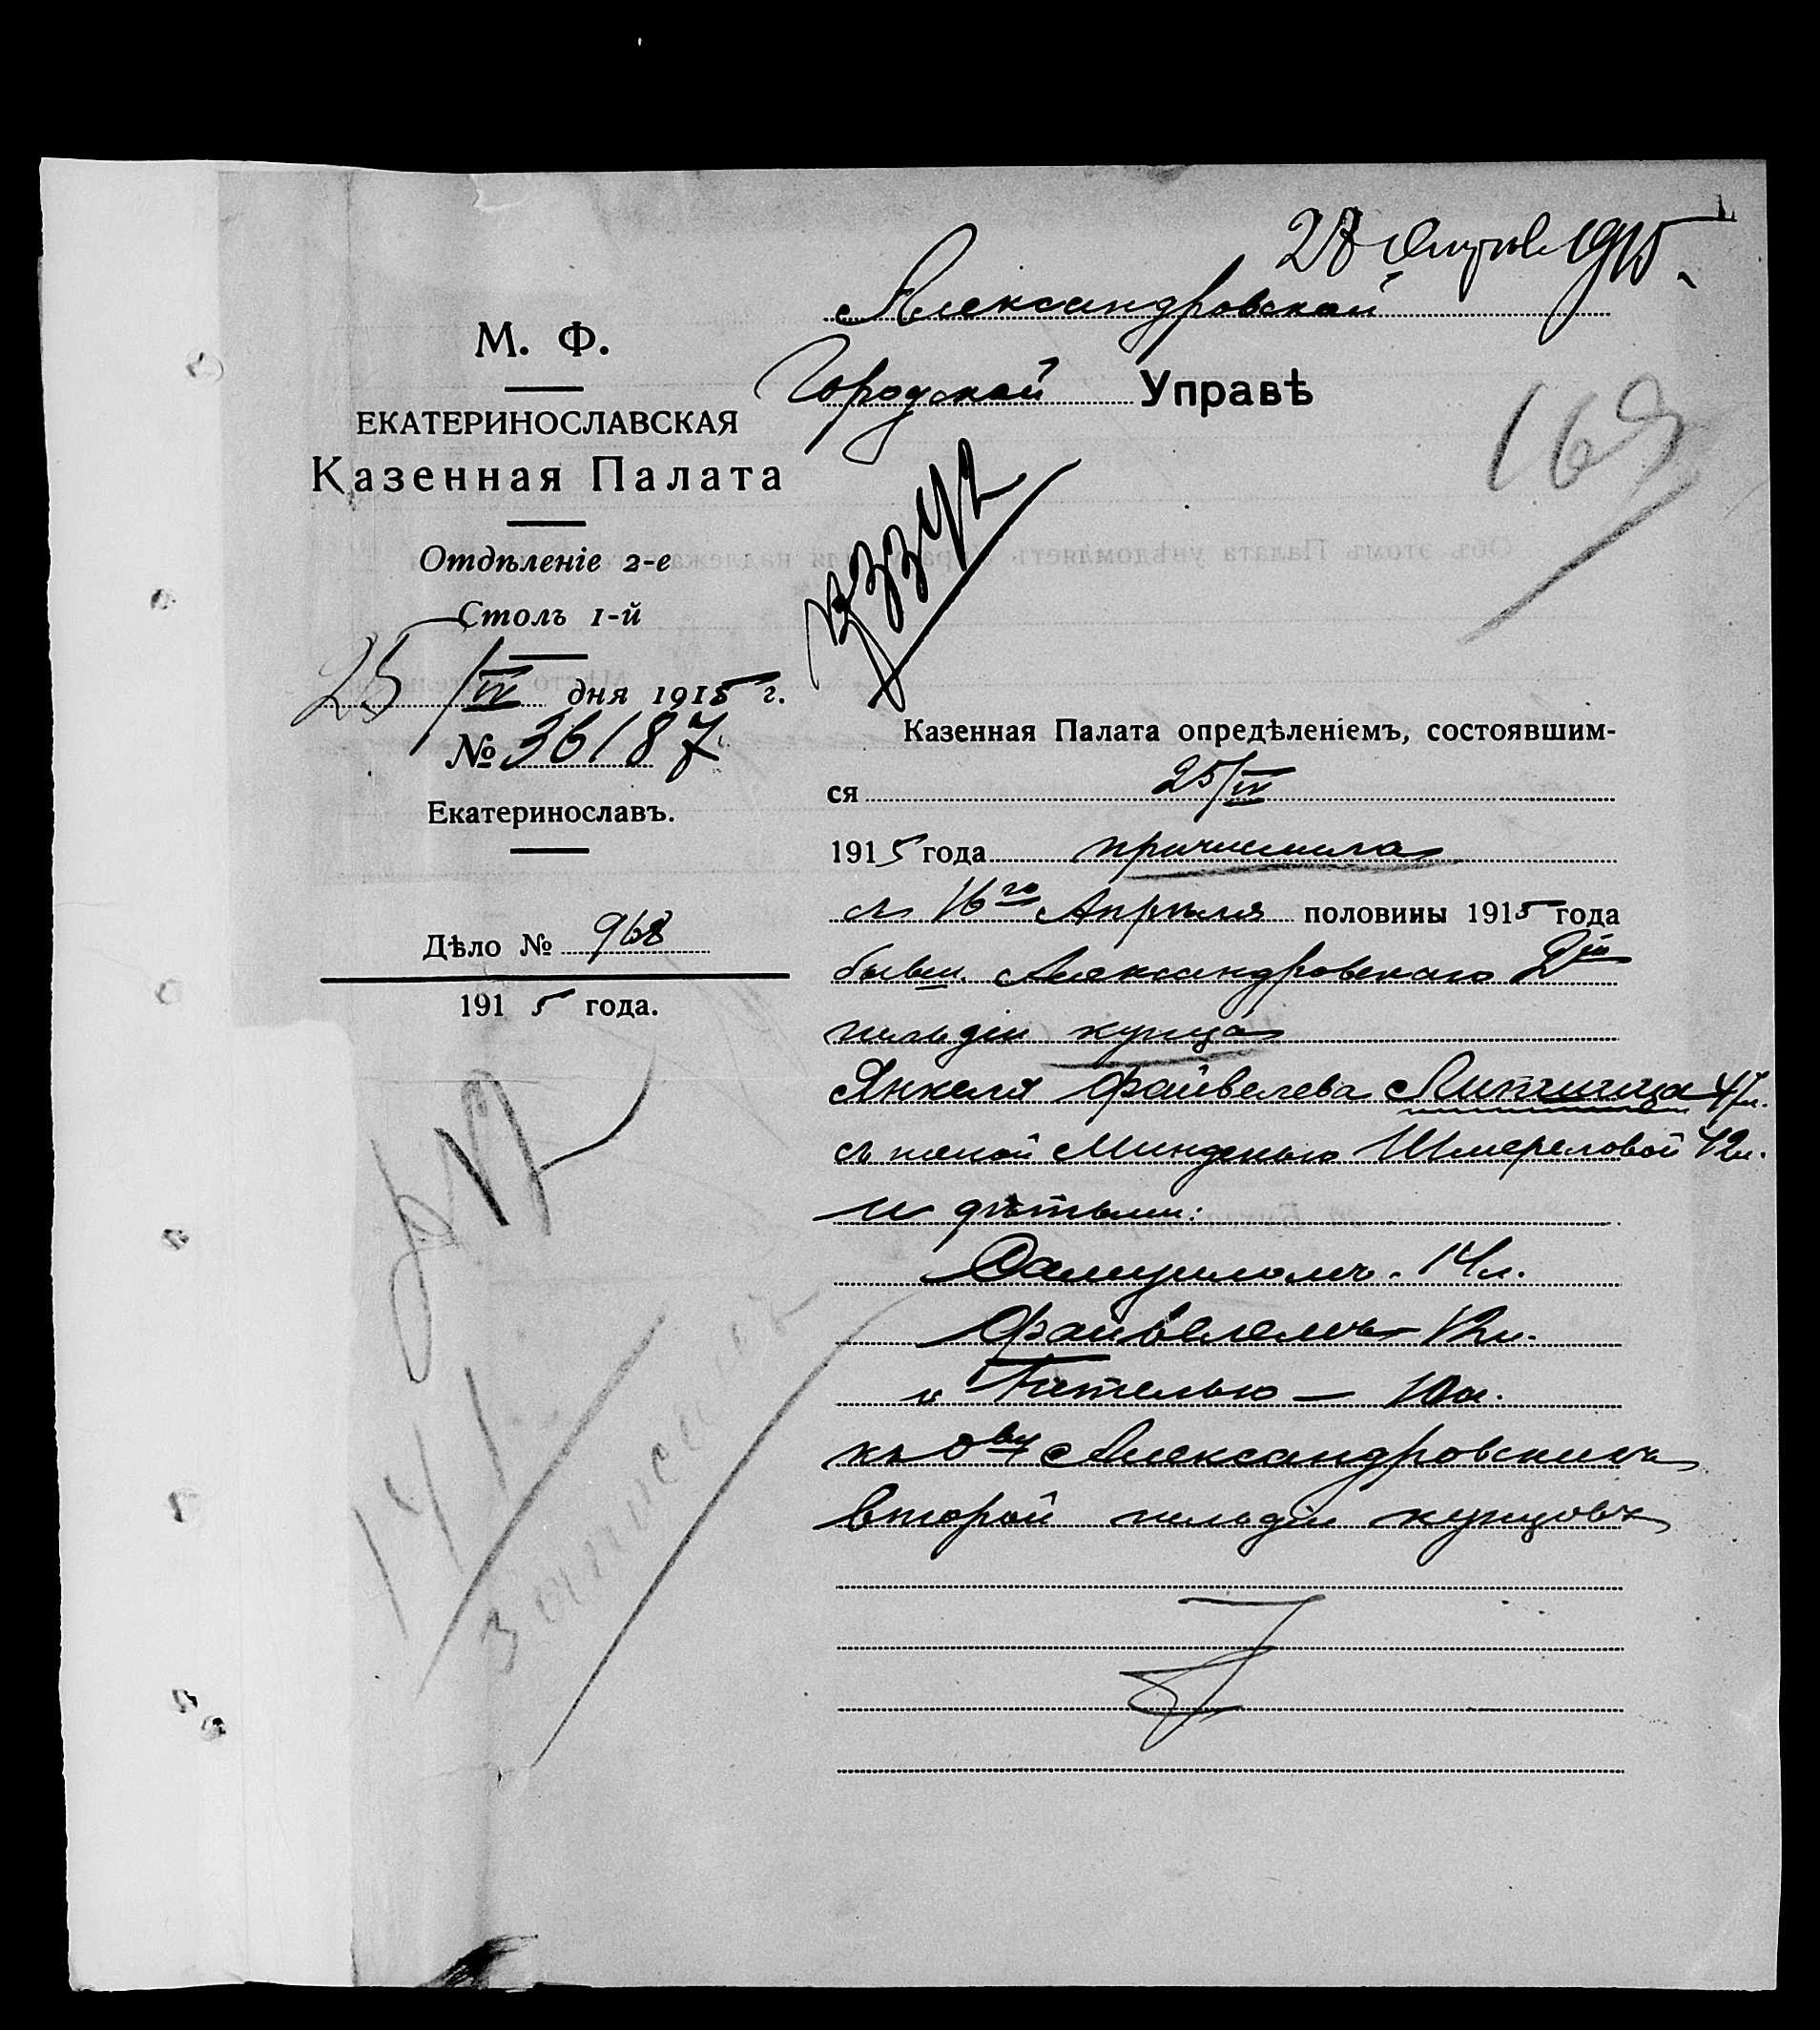 28 Апрѣля 1915.
Александровской
Городской Управѣ
М. Ф.
ЕКАТЕРИНОСЛАВСКАЯ
Казенная Палата
Отдѣленіе 2-е
Столъ 1-й
25/IV дня 1915 г.
№ 36187
Екатеринославъ.
Дѣло № 968
1915 года.
Казенная Палата опредѣленіемъ, состоявшим-
ся 25/IV
1915 года причислила
съ 16го Апрѣля половины 1915 года
бывш. Александровскаго 2й
гильдіи купца
Янкеля Файвелева Липшица 47л.
съ женой Минденью Шмереловой 42л.
и дѣтьми:
Самуиломъ. 14л.
Файвелемъ 12л.
и Гителью — 10л.
къ Александровскимъ
второй гильдіи купцовъ
141
записана